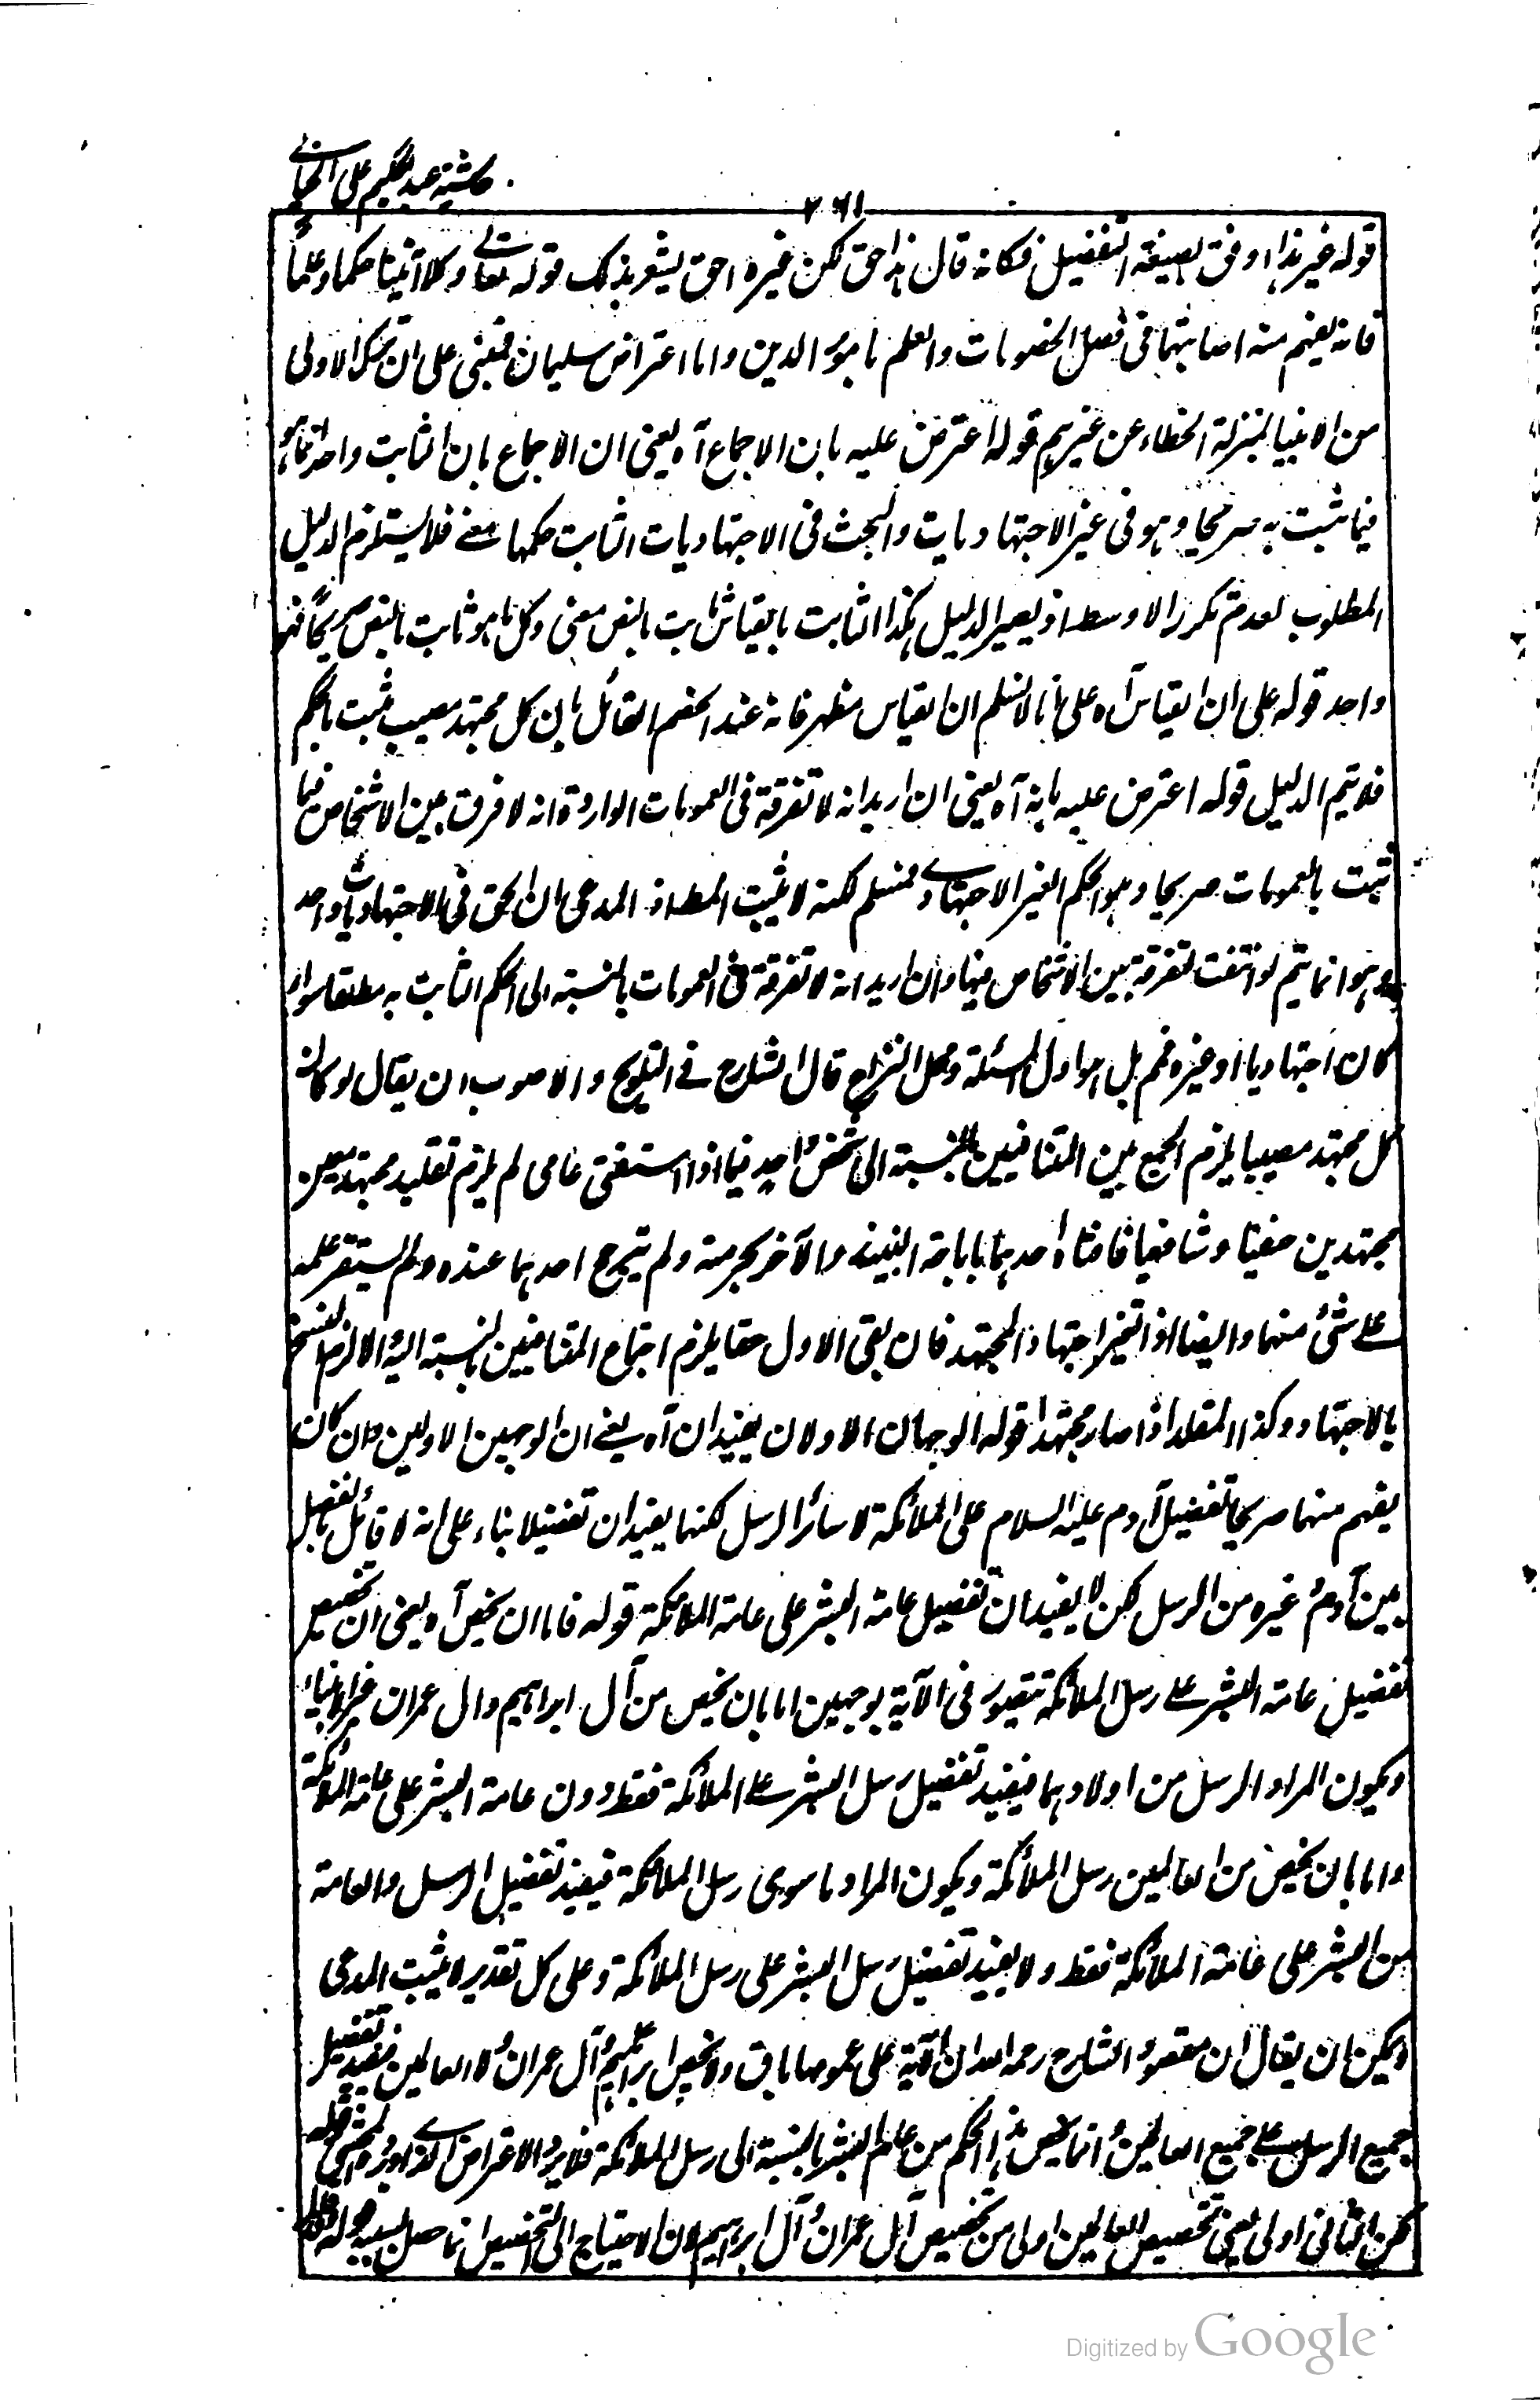 حاشية عبد الحكيم على الخيالي
٢٦١
قوله غير هذا اوفق بصيغة التفضيل فكانه قال هذا حق لكن غيره احق يشعر بذلك قوله تعالى وكلا آتينا حكما وعلماً
فانه يفهم منه اصابتهما في فصل الخصومات والعلم بامور الدين واما اعتراض سليمان فمبنى على ان ترك الاولى
من الانبيا بمنزلة الخطاء عن غيرهم قوله اعترض عليه بان الاجماع آه يعنى ان الاجماع بان الثابت واحد انما هو
فيما ثبت به صريحا وهو فى غير الاجتهاديات والبحث فى الاجتهاديات الثابت حكمها معنى فلا يستلزم الدليل
المطلوب لعدم تكرر الاوسط اذ يصير الدليل هكذا الثابت بالقياس ثابت بالنص معنى وكل ما هو ثابت بالنص صريحاً فهو
واحد قوله على ان القياس آه على انا لا نسلم ان القياس مظهر فانه عند الخصم القائل بان كل مجتهد مصيب مثبت للحكم
فلا يتم الدليل قوله اعترض عليه بانه آه يعنى ان اريد انه لا تفرقة فى العمومات الواردة انه لا فرق بين الاشخاص فيما
ثبت بالعمومات صريحا وهو الحكم الغير الاجتهادى فمسلم لكنه لا يثبت المط اذ المدعى ان الحق فى الاجتهاديات واحد
وهو انما يتم لو انتفت تفرقة بين الاشخاص فيها وان اريد انه لا تفرقة فى العمومات بالنسبة الى الحكم الثابت به مطلقا سواء
كان اجتهاديا او غيره فمم بل هو اول المسئلة ومحل النزاع قال الشارح فى التلويح والاصوب ان يقال لو كان
كل مجتهد مصيبا يلزم الجمع بين المتنافيين بالنسبة الى شخص واحد فيما اذا استفتى عامى لم يلزم تقليد مجتهد معين
مجتهدين حنفيا وشافعيا فافتاه احدهما باباحة النبيذ والآخر بحرمته ولم يترجح احدهما عنده ولم يستقر علمه
على شئ منهما وايضا اذا تغير اجتهاد المجتهد فان بقى الاول حقا يلزم اجتماع المتنافيين بالنسبة اليه والا لزم النسخ
بالاجتهاد وكذا المقلد اذا صار مجتهدا قوله الوجهان الاولان يفيدان آه يعنى ان الوجهين الاولين وان كان
يفهم منهما صريحا تفضيل آدم عليه السلام على الملائكة لا سائر الرسل لكنهما يفيدان تفضيلا بناء على انه لا قائل بالفصل
بين آدم وغيره من الرسل لكن لا يفيدان تفضيل عامة البشر على عامة الملائكة قوله فاما ان يخص آه يعنى ان تخصيص
تفضيل عامة البشر على رسل الملائكة يتصور فى الآية بوجهين اما بان يخص من آل ابراهيم وال عمران غير الانبياء
ويكون المراد الرسل من اولادهما فيفيد تفضيل رسل البشر على الملائكة فقط دون عامة البشر على عامة الملائكة
واما بان يخص من العالمين رسل الملائكة ويكون المراد ما سوى رسل الملائكة فيفيد تفضيل الرسل والعامة
من البشر على عامة الملائكة فقط ولا يفيد تفضيل رسل البشر على رسل الملائكة وعلى كل تقدير لا يثبت المدعى
ويمكن ان يقال ان مقصود الشارح رحمه الله ان الآية على عمومها باق ولا يخص آل ابراهيم وآل عمران ولا العالمين فيفيد تفضيل
جميع الرسل على جميع العالمين وانما يخص هذا الحكم من عام البشر بالنسبة الى رسل الملائكة فلا يرد الاعتراض الذى اورده المحشى
لكن الثانى اولى يعنى تخصيص العالمين اولى من تخصيص آل عمران وآل ابراهيم لان الاحتياج الى التخصيص انما حصل بسببه